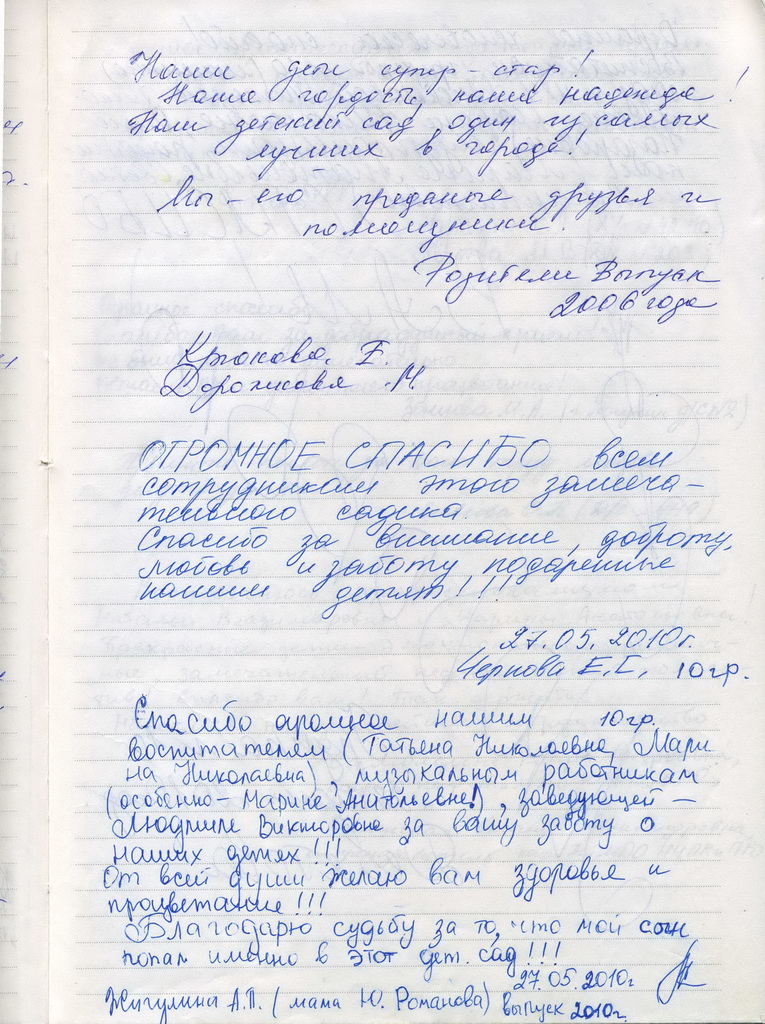 Наши дети супер-стар!
Наша гордость, наша надежда!
Наш детский сад один из самых
лучших в городе!
Мы - его преданые друзья и
помощники.
Родители Выпуск
2006 года
Крюкова. Е.
Дорожкова М.
ОГРОМНОЕ СПАСИБО всем
сотрудникам этого замеча-
тельного садика.
Спасибо за внимание, доброту,
любовь и заботу подаренные
нашим детям!!!
27.05.2010г.
Чернова Е.Г. 10гр.
Спасибо огромное нашим 10гр.
воспитателям (Татьяна Николаевна, Мари
на Николаевна), музыкальным работникам
(особенно - Марине Анатольевне!), заведующей -
Людмиле Викторовне за вашу заботу о
наших детях!!!
От всей души желаю вам здоровье и
процветание!!!
Благодарю судьбу за то, что мой сын
попал именно в этот дет. сад!!!
27.05.2010г
Жигулина А.П. (мама Ю. Романова) выпуск 2010г.